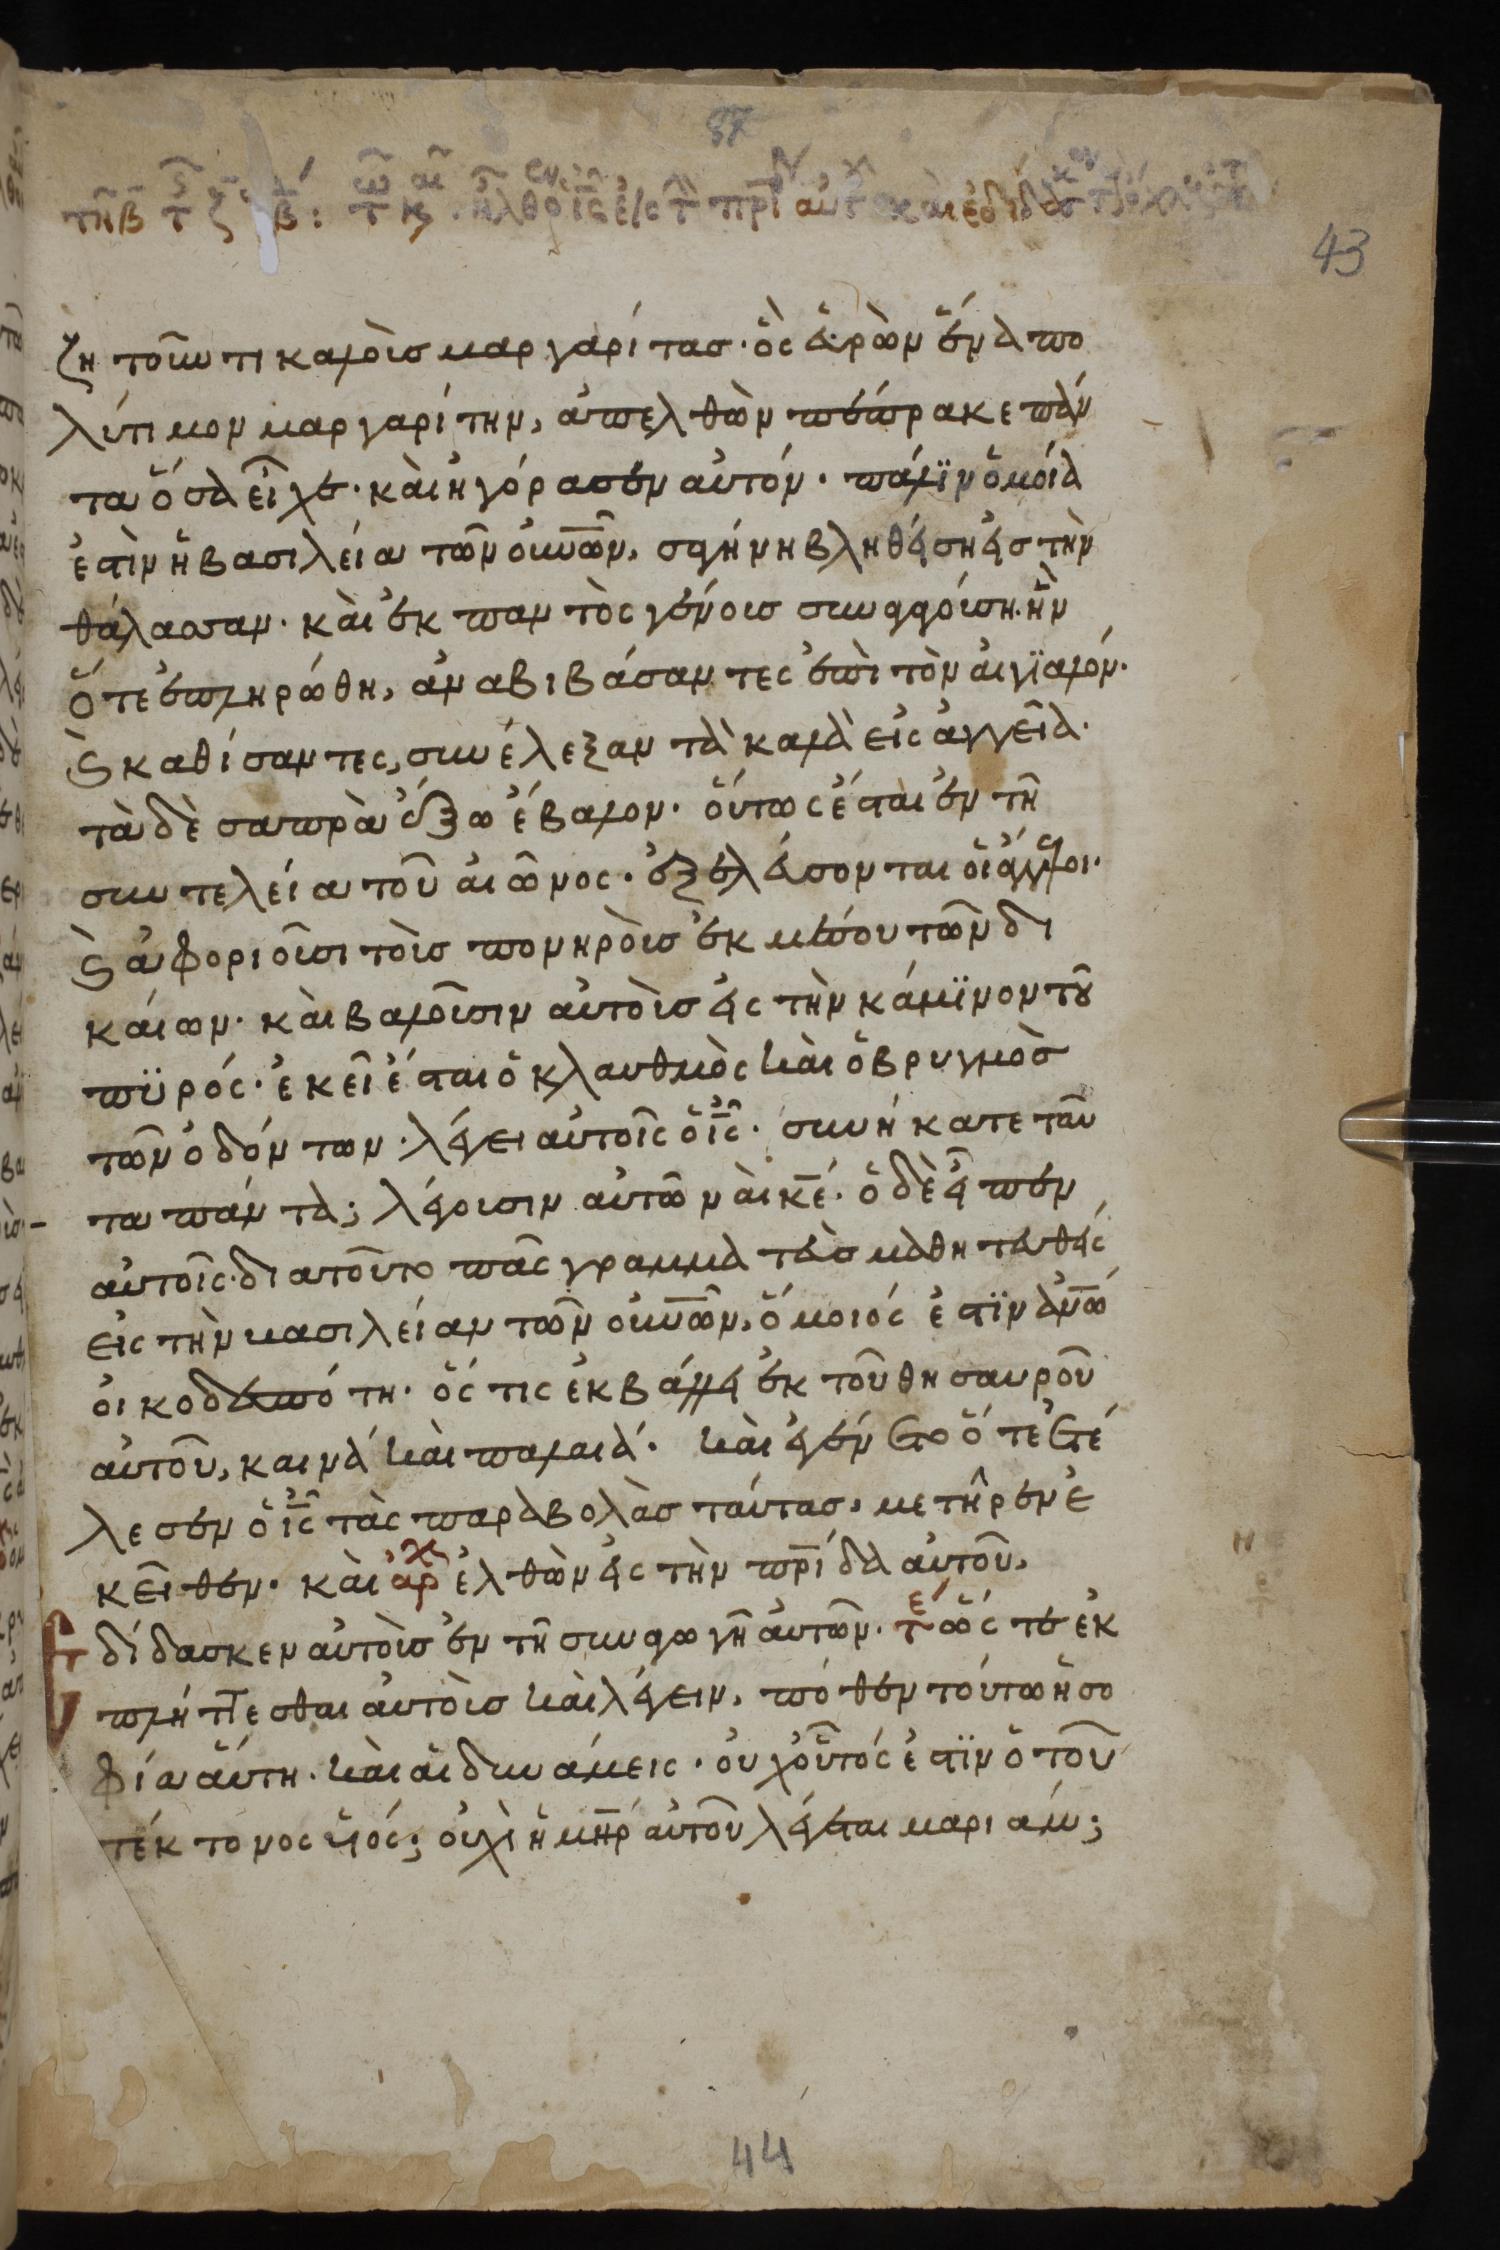 43
ζητοῦντι καλοὺσ μαργαρίτασ· ὃς εὑρὼν ἕνα πο
λύτιμον μαργαρίτην, ἀπελθὼν πέπρακε πάν
τα ὅσα εἶχε· καὶ ἠγόρασεν αὐτόν· πάλϊν ὁμοία
ἐστὶν ἡ βασιλεία τῶν οὐνῶν, σαγήνη βληθείση εἰσ τὴν
θάλασσαν· καὶ ἐκ παντὸς γένουσ συναγούση· ἣν
ὅτε ἐπληρώθη, ἀναβιβάσαντες ἐπὶ τὸν αἰγϊαλόν·
ϗ καθίσαντες, συνέλεξαν τὰ καλὰ εἰς ἀγγεῖα·
τὰ δὲ σαπρὰ ἔξω ἔβαλον· οὕτως ἔσται ἐν τῇ
συντελεία τοῦ αἰῶνος· ἐξελεύσονται οἱ ἄγγελοι·
ϗ ἀφοριοῦσι τοὺσ πονηροὺσ ἐκ μέσου τῶν δι
καίων· καὶ βαλοῦσιν αὐτοὺσ εἰς τὴν κάμϊνον τοῦ
πϋρός· ἐκεῖ ἔσται ὁ κλαυθμὸς καὶ ὁ βρυγμὸσ
τῶν ὀδόντων· λέγει αὐτοῖς ὁ ἰς· συνήκατε ταῦ
τα πάντα; λέγουσιν αὐτῶ ναὶ κέ· ὁ δὲ εἶπεν
αὐτοῖς· διατοῦτο πᾶς γραμματεὺσ μαθητευθεὶς
εἰς τὴν βασιλείαν τῶν οὐνῶν, ὅμοιός ἐστϊν ἀνῶ
οἰκοδεσπότη· ὅς τις ἐκβάλλει ἐκ τοῦ θησαυροῦ
αὐτοῦ, καινὰ καὶ παλαιά· καὶ ἐγένετο ὅτε ἐτέ
λεσεν ὁ ἰς τὰς παραβολὰσ ταύτασ, μετῆρεν ἐ
κεῖθεν· καὶ ἀρχ ἐλθὼν εἰς τὴν πρίδα αὐτοῦ,
ἐδίδασκεν αὐτοὺσ ἐν τῇ συναγωγῇ αὐτῶν· τέ ὥς τε ἐκ
πλήττεσθαι αὐτοὺσ καὶ λέγειν, πόθεν τούτω ἡ σο
φία αὕτη· καὶ αἱ δυνάμεις· οὐχ οὗτός ἐστϊν ὁ τοῦ
τέκτονος υἱός; οὐχὶ ἡ μηρ αὐτοῦ λέγεται μαριάμ;
44